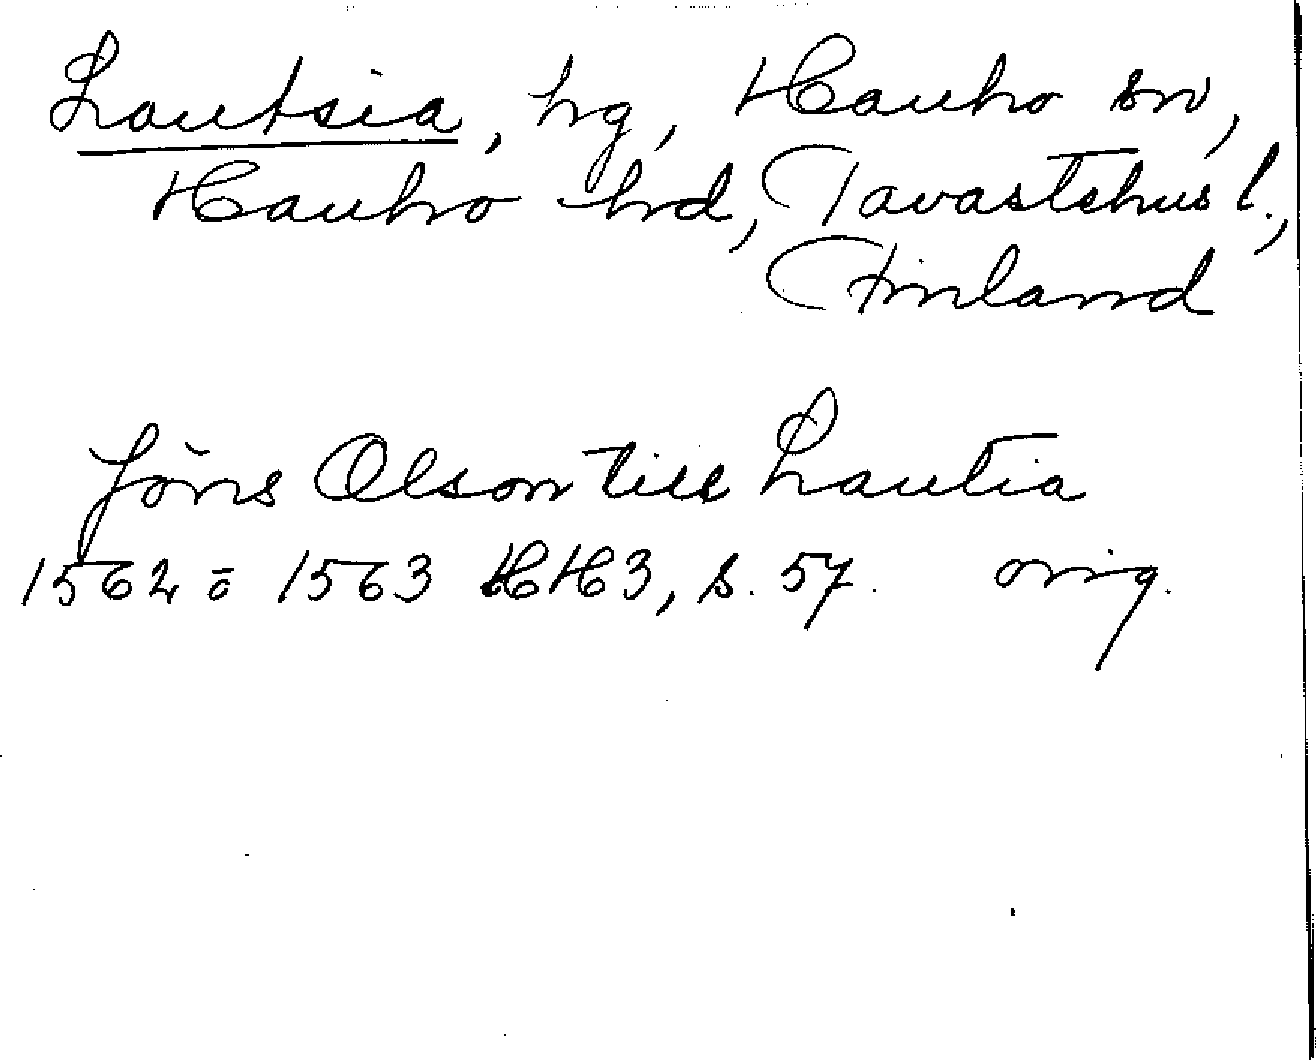 Lautsia, hg, Hauho sn,
Hauho hd, Tavastehus l.,
Finland
Jöns Olson till Lautia
1562 ō 1563 HH3, s. 57. orig.